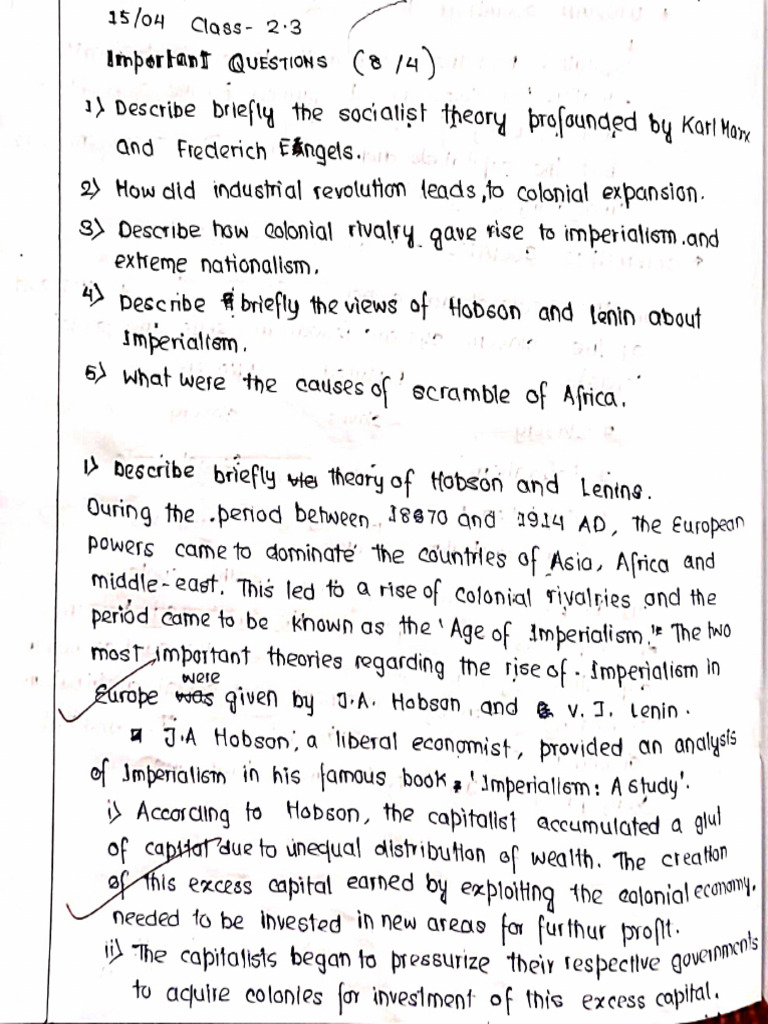 15/04 Class- 2.3
Important QUESTIONS (8/4)
1) Describe briefly the socialist theory profounded by Karl Marx
and Frederich Engels.
2) How did industrial revolution leads to colonial expansion.
3) Describe how colonial rivalry gave rise to imperialism and
extreme nationalism.
4) Describe briefly the views of Hobson and lenin about
Imperialism.
5) what were the causes of scramble of Africa.
1) Describe briefly theory of Hobson and Lenins.
During the period between 1870 and 1914 AD, the European
powers came to dominate the countries of Asia, Africa and
middle-east. This led to a rise of colonial rivalries and the
period came to be known as the 'Age of Imperialism.' The two
most important theories regarding the rise of Imperialism in
Europe were given by J.A. Hobson and V. I. Lenin.
J.A Hobson, a liberal economist, provided an analysis
of Imperialism in his famous book, 'Imperialism: A study'.
i) According to Hobson, the capitalist accumulated a glut
of capital due to unequal distribution of wealth. The creation
of this excess capital earned by exploiting the colonial economy,
needed to be invested in new areas for furthur profit.
ii) The capitalists began to pressurize their respective governments
to aquire colonies for investment of this excess capital.